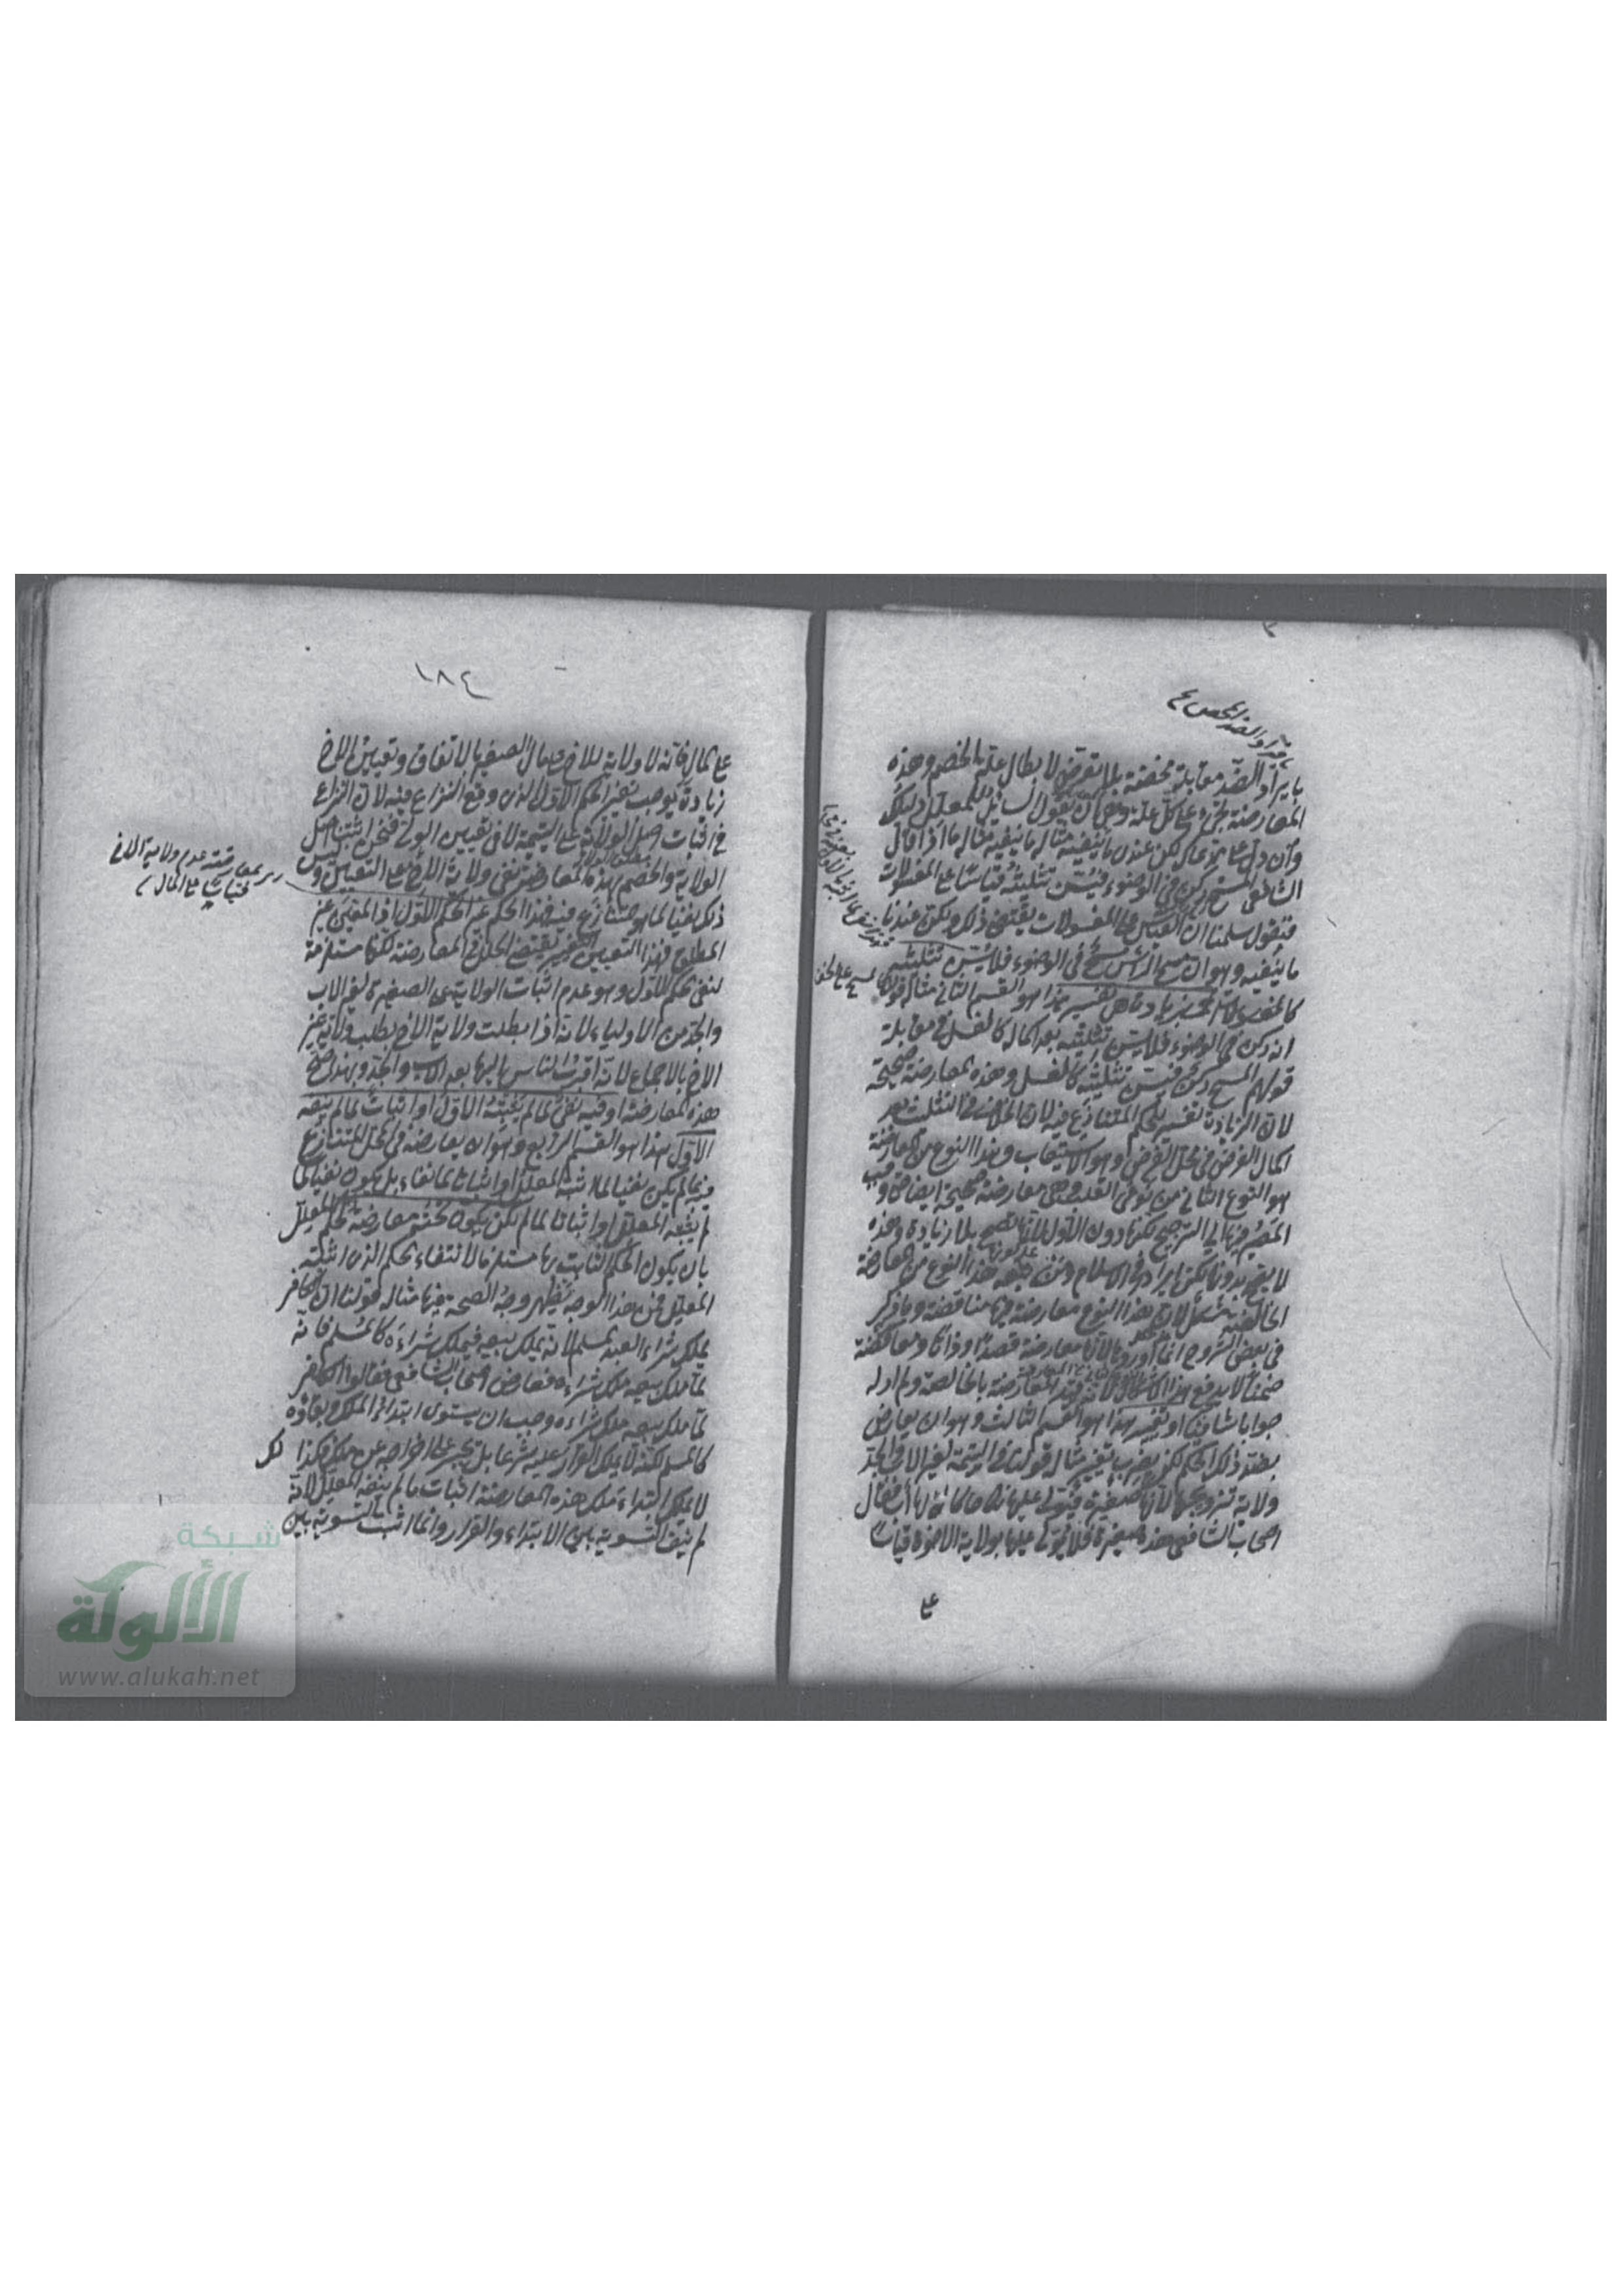 بايراد الضد مقابلة محضة بلا تعرض لابطال علة الخصم وهذه
المعارضة تجري على كل علة وهي ان يقول السائل للمعلل دليلك
وان دل على مدعاك لكن عندي ما ينفيه مثال ما ينفيه مثاله ما اذا قال
الشافعي المسح ركن في الوضوء فيسن تثليثه قياسا على المغسولات
فنقول سلمنا ان القياس على المغسولات يقتضي ذلك ولكن عندنا
ما ينفيه وهو ان مسح الرأس مسح في الوضوء فلا يسن تثليثه
كمسح الخف او بزيادة هي تفسير هذا هو القسم الثاني مثاله قولنا
انه ركن في الوضوء فلا يسن تثليثه بعد اكماله كالغسل في مقابلة
قولهم المسح ركن فيسن تثليثه كالغسل وهذه معارضة صحيحة
لان الزيادة تفسير للحكم المتنازع فيه لان الخلاف في التثليث بعد
اكمال الفرض في محل الفرض وهو الاستيعاب وهذا النوع من المعارضة
هو النوع الثاني من نوعي القلب وهي معارضة صحيحة ايضا
المصير فيها الى الترجيح لكنها دون الاول لانها تصح بلا زيادة وهذه
لا تصح بدونها لكن ايراد فخر الاسلام هذا النوع من المعارضة
الخالصة مشكل لان هذا النوع معارضة فيها مناقضة وما ذكر
في بعض الشروح انما اوردها لانها معارضة قصدا وذاتا ومناقضة
ضمنا لا يدفع هذا الاشكال لانه قيد المعارضة بالخالصة ولم ار له
جوابا شافيا او تغيير هذا هو القسم الثالث وهو ان يعارض
بضد ذلك الحكم لكن بضرب تغيير مثاله قولنا في اليتيمة لغير الاب والجد
ولاية تزويجها لانها صغيرة فيولى عليها نكاحا كالتي لها اب فقال
اصحاب الشافعي هذه صغيرة فلا يولى عليها بولاية الاخوة قياسا
على
١٨٤
على المال فانه لا ولاية للاخ على مال الصغير بالاتفاق وتعيين الاخ
زيادة يوجب تغيير الحكم الاول الذي وقع النزاع فيه لان النزاع
في اثبات اصل الولاية على اليتيمة لا في تعيين الولي فنحن اثبتنا اصل
الولاية والخصم بهذه المعارضة نفى ولاية الاخ على التعيين وليس
ذلك نفيا لما هو المتنازع فيه فهذا الحكم غير الحكم الاول اذ المعين غير
المطلق فهذا التعيين والتغيير يقتضي الخلل في المعارضة لكنها مستلزمة
لنفي الحكم الاول وهو عدم اثبات الولاية على الصغيرة لغير الاب
والجد من الاولياء لانه اذا بطلت ولاية الاخ بطلت ولاية غير
الاخ بالاجماع لانه اقرب الناس اليها بعد الاب والجد وبهذا صح
هذه المعارضة او فيه نفي لما لم يثبته الاول او اثبات لما لم ينفه
الاول هذا هو القسم الرابع وهو ان يعارضه في محل المتنازع
فيه بما لم يكن نفيا لما اثبته المعلل او اثباتا لما نفاه بل يكون نفيا لما
لم يثبته المعلل او اثباتا لما لم ينفه لكن يكون تحته معارضة لحكم المعلل
بان يكون الحكم الثابت بها مستلزما لانتفاء الحكم الذي اثبته
المعلل فمن هذا الوجه يظهر وجه الصحة فيها مثاله قولنا ان الكافر
يملك شراء العبد المسلم لانه يملك بيعه فيملك شراءه كالمسلم فانه
لما ملك بيعه ملك شراءه فعارض اصحاب الشافعي فقالوا الكافر
لما ملك بيعه ملك شراءه وجب ان يستوي ابتداء الملك وبقاؤه
كالمسلم لكنه لا يملك القرار عليه شرعا بل يجبر على اخراجه عن ملكه فكذا
لا يملك ابتداء ملك هذه المعارضة اثبات ما لم ينفه المعلل لانه
لم ينف التسوية بين الابتداء والقرار وانما اثبت التسوية بين
شبكة
الألوكة
www.alukah.net